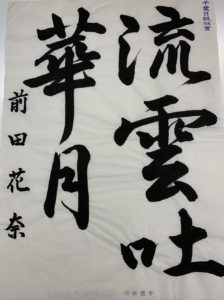 千葉日報社賞
流雲吐
華月
前田花奈